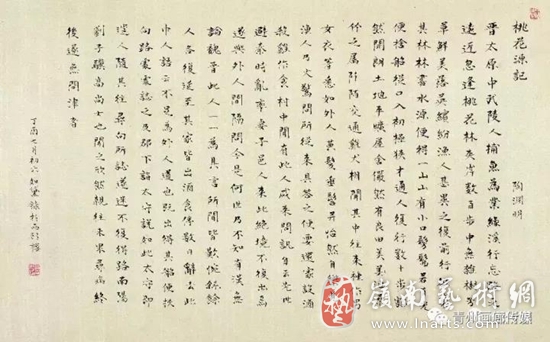 桃花源記
陶淵明
晉太原中武陵人捕魚為業緣溪行忘
遠近忽逢桃花林夾岸數百步中無雜樹
草鮮美落英繽紛漁人甚異之復前行
其林林盡水源便得一山山有小口髣髴若
便捨船從口入初極狹才通人復行數十步豁
然開朗土地平曠屋舍儼然有良田美
竹之屬阡陌交通雞犬相聞其中往來種作男
女衣著悉如外人黃髮垂髫並怡然自
漁人乃大驚問所從來具答之便要還家設酒
殺雞作食村中聞有此人咸來問訊自云先世
避秦時亂率妻子邑人來此絕境不復出焉
遂與外人間隔問今是何世乃不知有漢無
論魏晉此人一一為具言所聞皆歎惋餘
人各復延至其家皆出酒食停數日辭去此
中人語云不足為外人道也既出得其船便扶
向路處處誌之及郡下詣太守說如此太守即
遣人隨其往尋向所誌遂迷不復得路南陽
劉子驥高尚士也聞之欣然親往未果尋病終
後遂無問津者
丁酉七月初六
嶺南藝術網
www.lnarts.com
青州画廊传媒